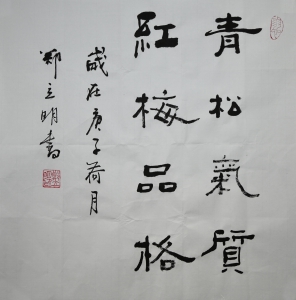 青松氣质
紅梅品格
歲在庚子荷月
郑立明書